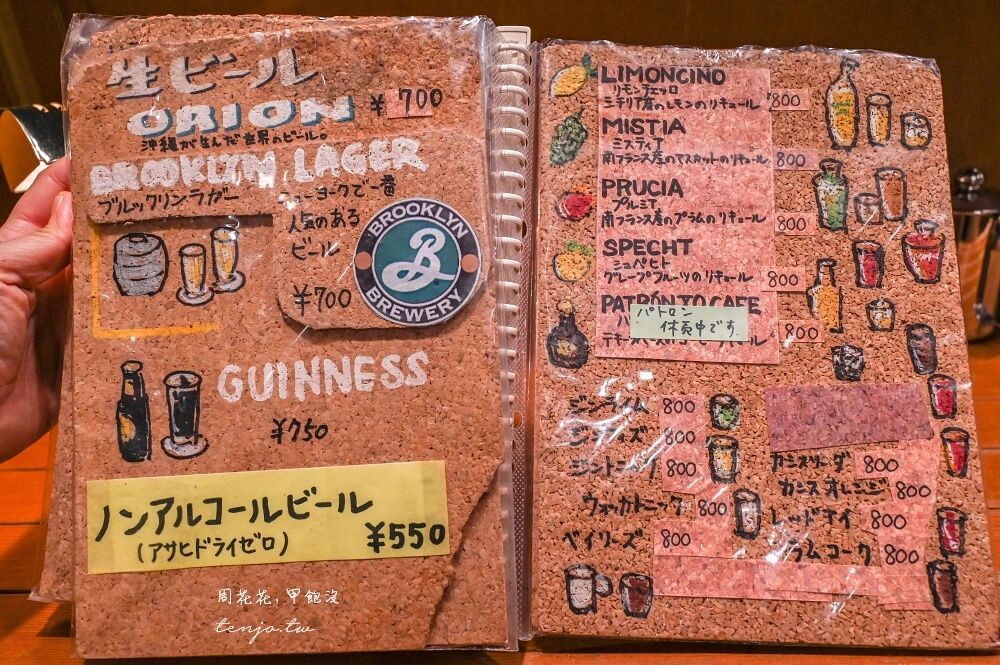 生ビール
ORION
¥700
沖縄が生んだ世界のビール。
BROOKLYN LAGER
ブルックリンラガー
ニューヨークで一番
人気のある
ビール
¥700
BROOKLYN
B
BREWERY
GUINNESS
¥750
ノンアルコールビール
(アサヒドライゼロ)
¥550
周花花,甲飽沒
tenjo.tw
LIMONCINO
リモンチェッロ
シチリア産のレモンのリキュール
800
MISTIA
ミスティア
南フランス産のマスカットのリキュール
800
PRUCIA
プルシア
南フランス産のプラムのリキュール
800
SPECHT
シュペヒト
グレープフルーツのリキュール
800
PATRÓN XO CAFE
パトロン
休頁中です
800
ジンライム 800
800
ジントニック 800
ウォッカトニック 800
ベイリーズ 800
カシスソーダ 800
カシスオレンジ 800
レッドアイ 800
ラムコーク 800